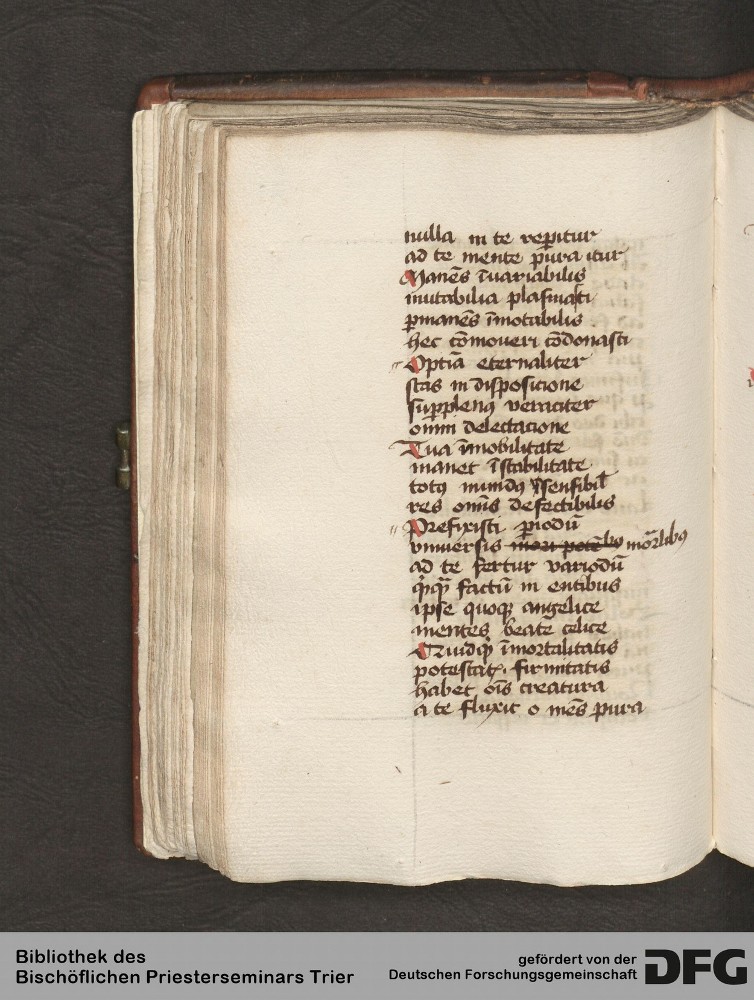 nulla in te reꝑitur
ad te mente pura itur
Manēs īuariabilis
mutabilia plasmasti
ꝑmanēs īmotabilis
hec cōmoueri cōdonasti
Optīa eternaliter
stas in disposicione
supplenꝰ veraciter
omni delectacione
Tua īmobilitate
manet īstabilitate
totꝰ mundꝰ sensibil
res om̄s defectibilis
Prefixisti ꝑiodū
vniuersis mori potētibꝰ mōrlibꝰ
ad te fertur variodū
factū in entibus
ipse quoqꝫ angelice
mentes beate celice
īmortalitatis
potestatꝭ firmitatis
habet oīs creatura
a te fluxit o mēs pura
Bibliothek des
Bischöflichen Priesterseminars Trier
gefördert von der
Deutschen Forschungsgemeinschaft
DFG